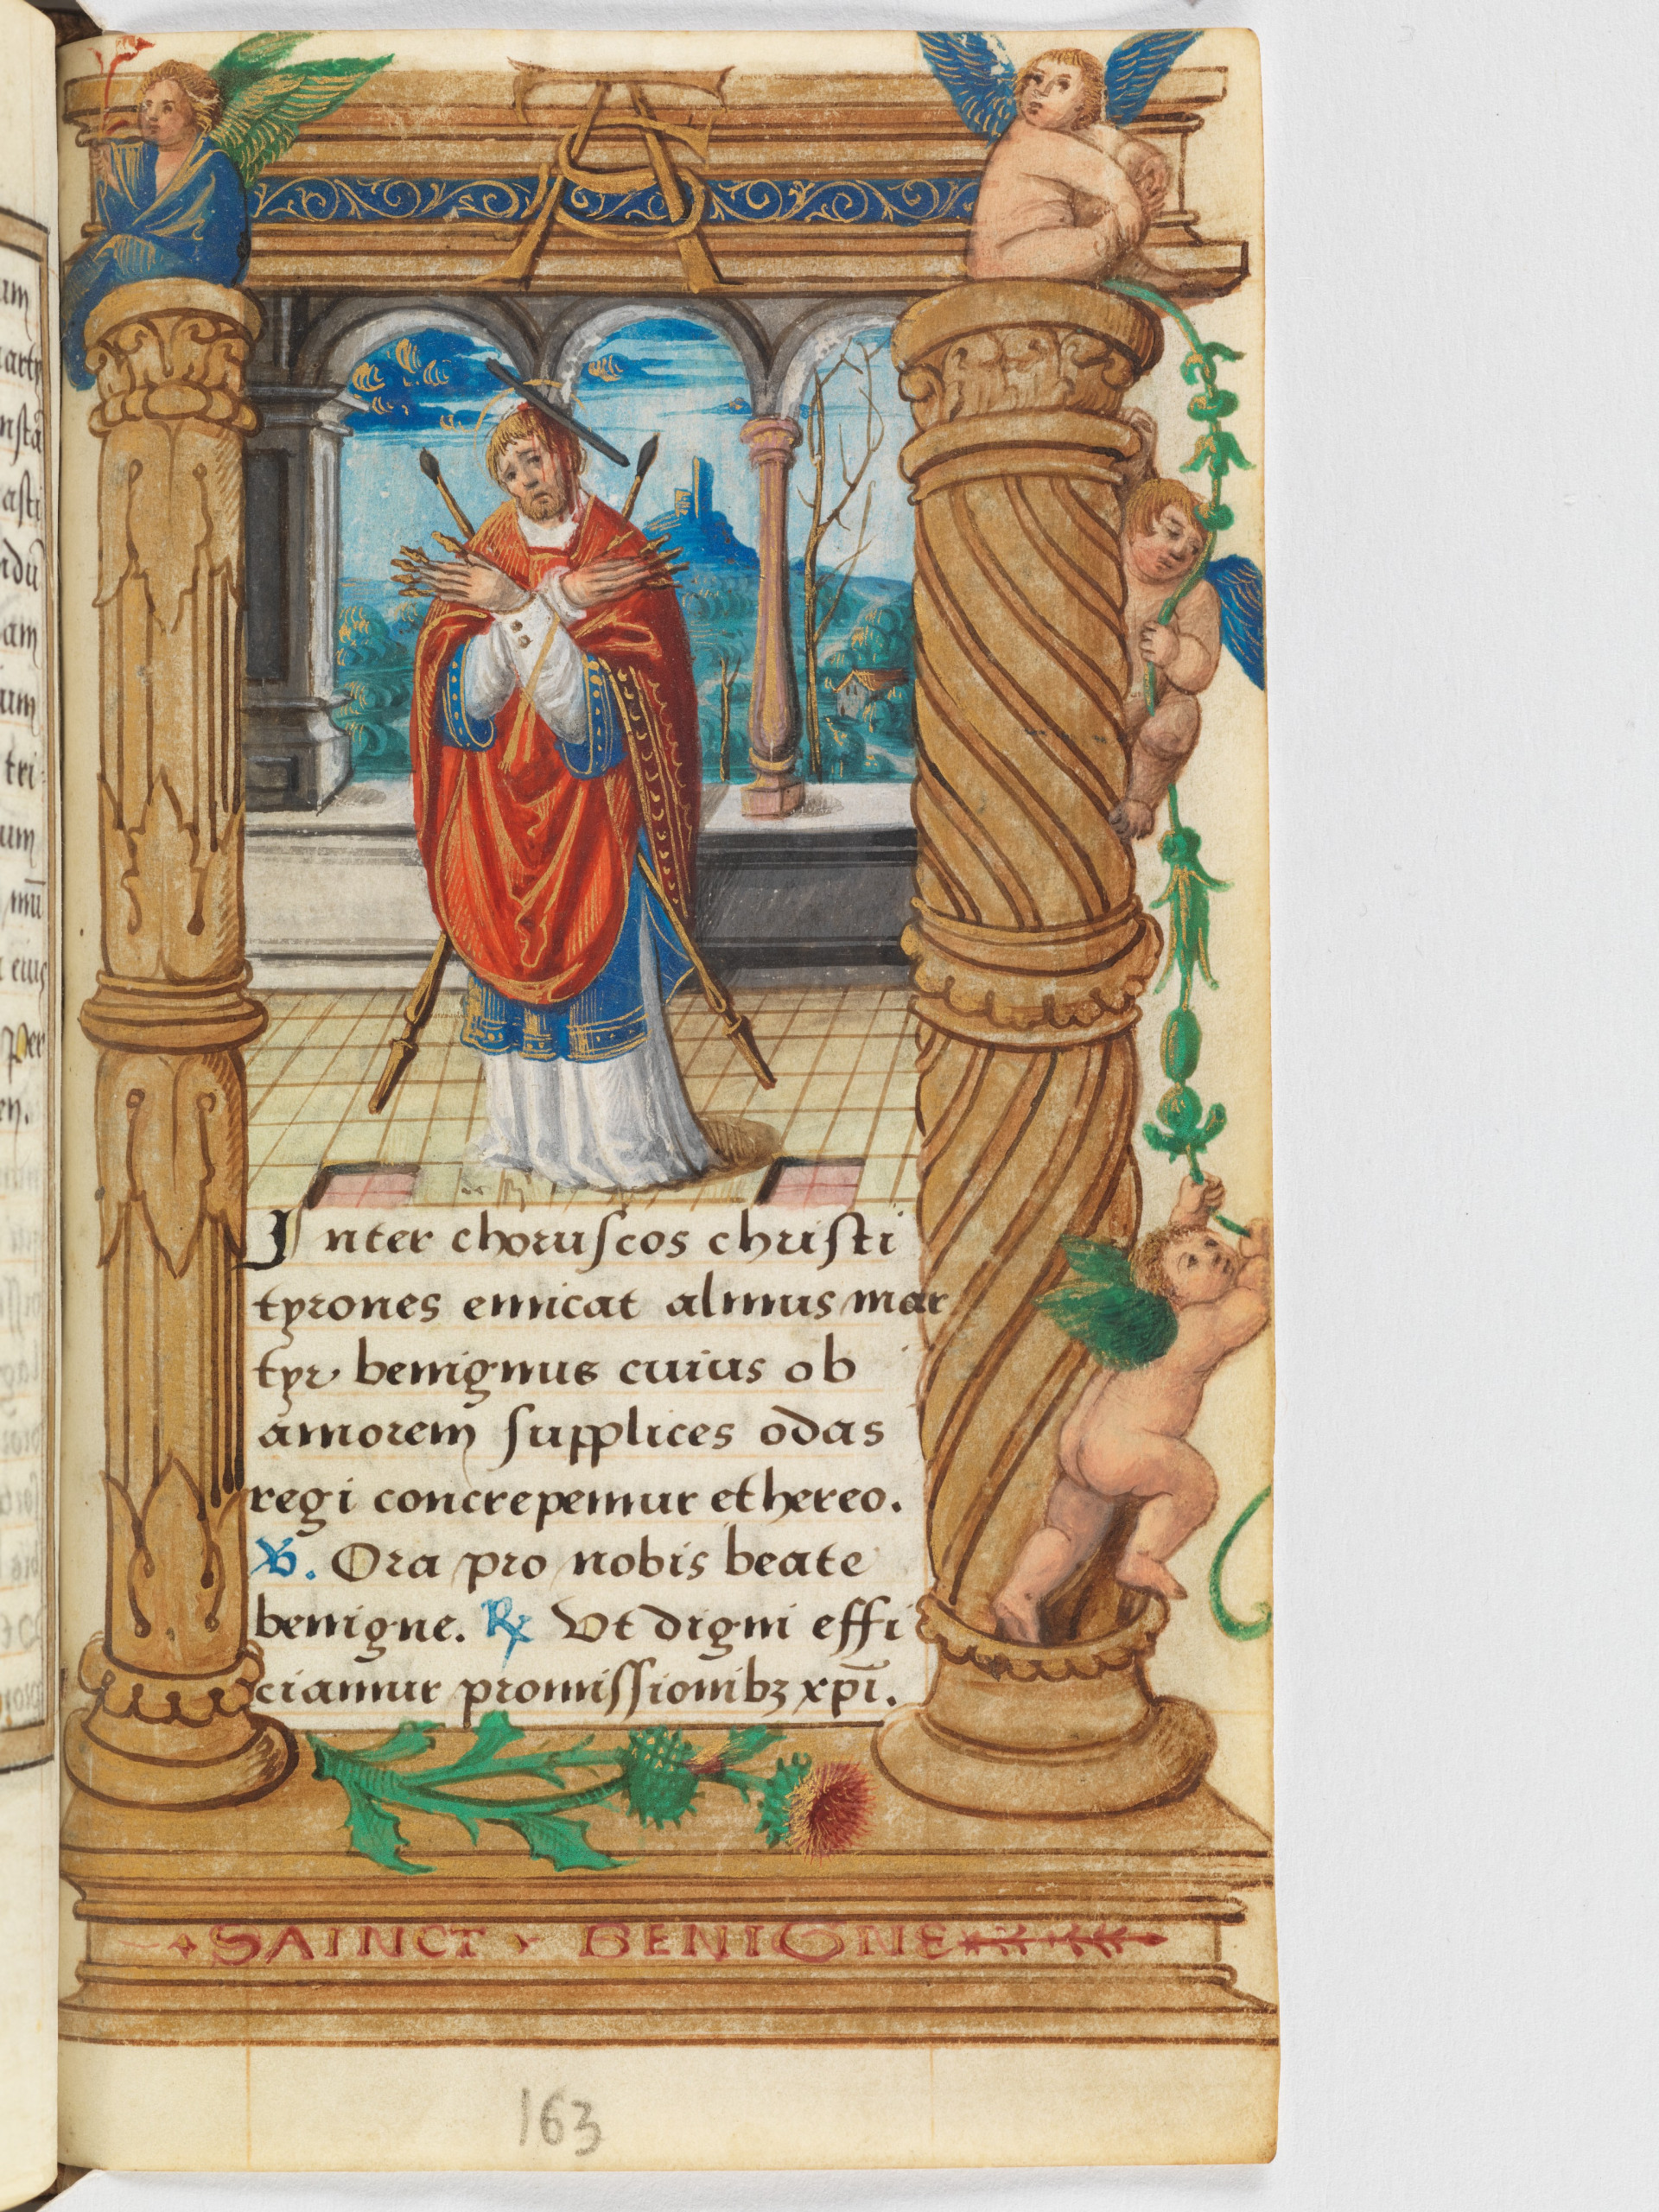 Inter choruſcos chriſti
tyrones emicat almus mar
tyr benignus cuius ob
amorem ſupplices odas
regi concrepemur ethereo.
℣. Ora pro nobis beate
benigne. ℟ Vt digni effi
ciamur promiſſionibꝫ xp̄i.
SAINCT BENIGNE
163